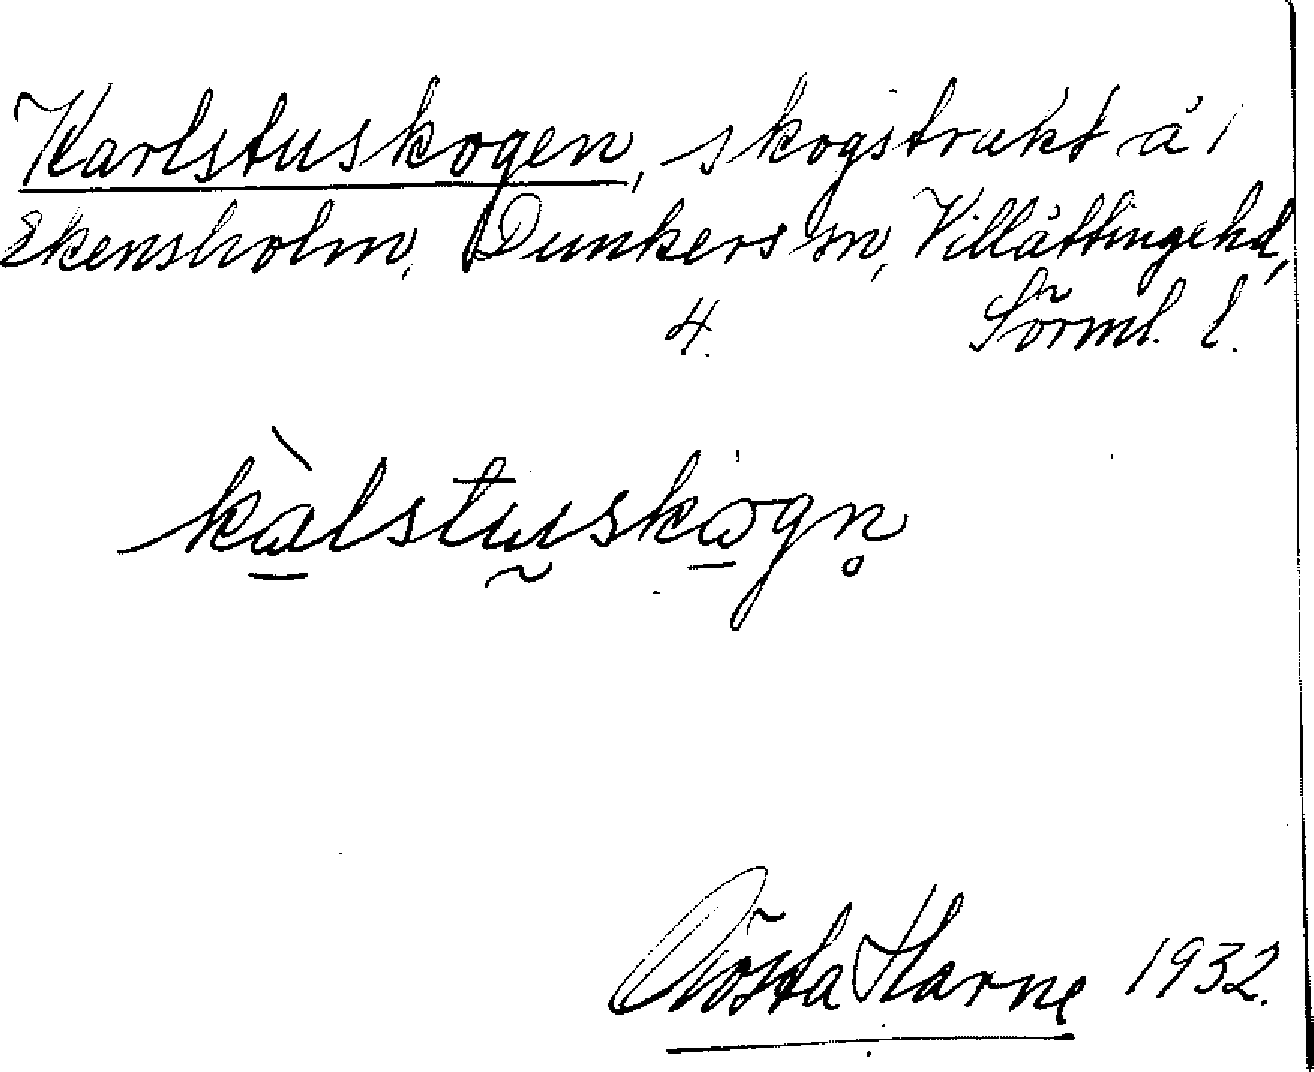 Karlstuskogen, skogstrakt å
Ekensholm, Dunkers sn, Villåttingehd,
4. Sörml. l.
kàlstuskogn̥
Gösta Harne 1932.